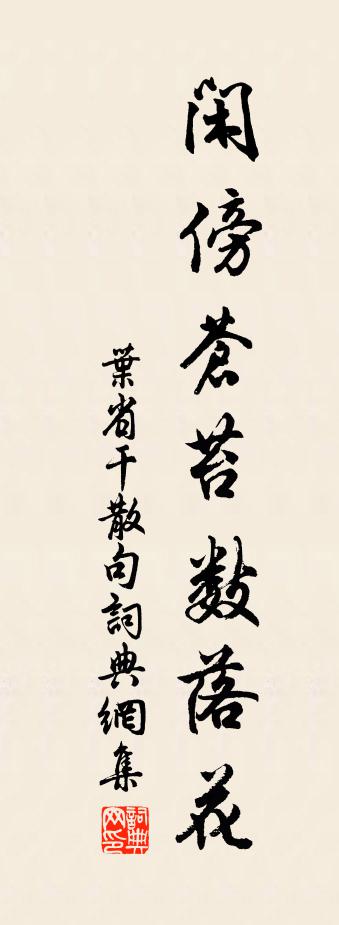 闲傍蒼苔數落花
葉省干散句詞典網集
詞典網印